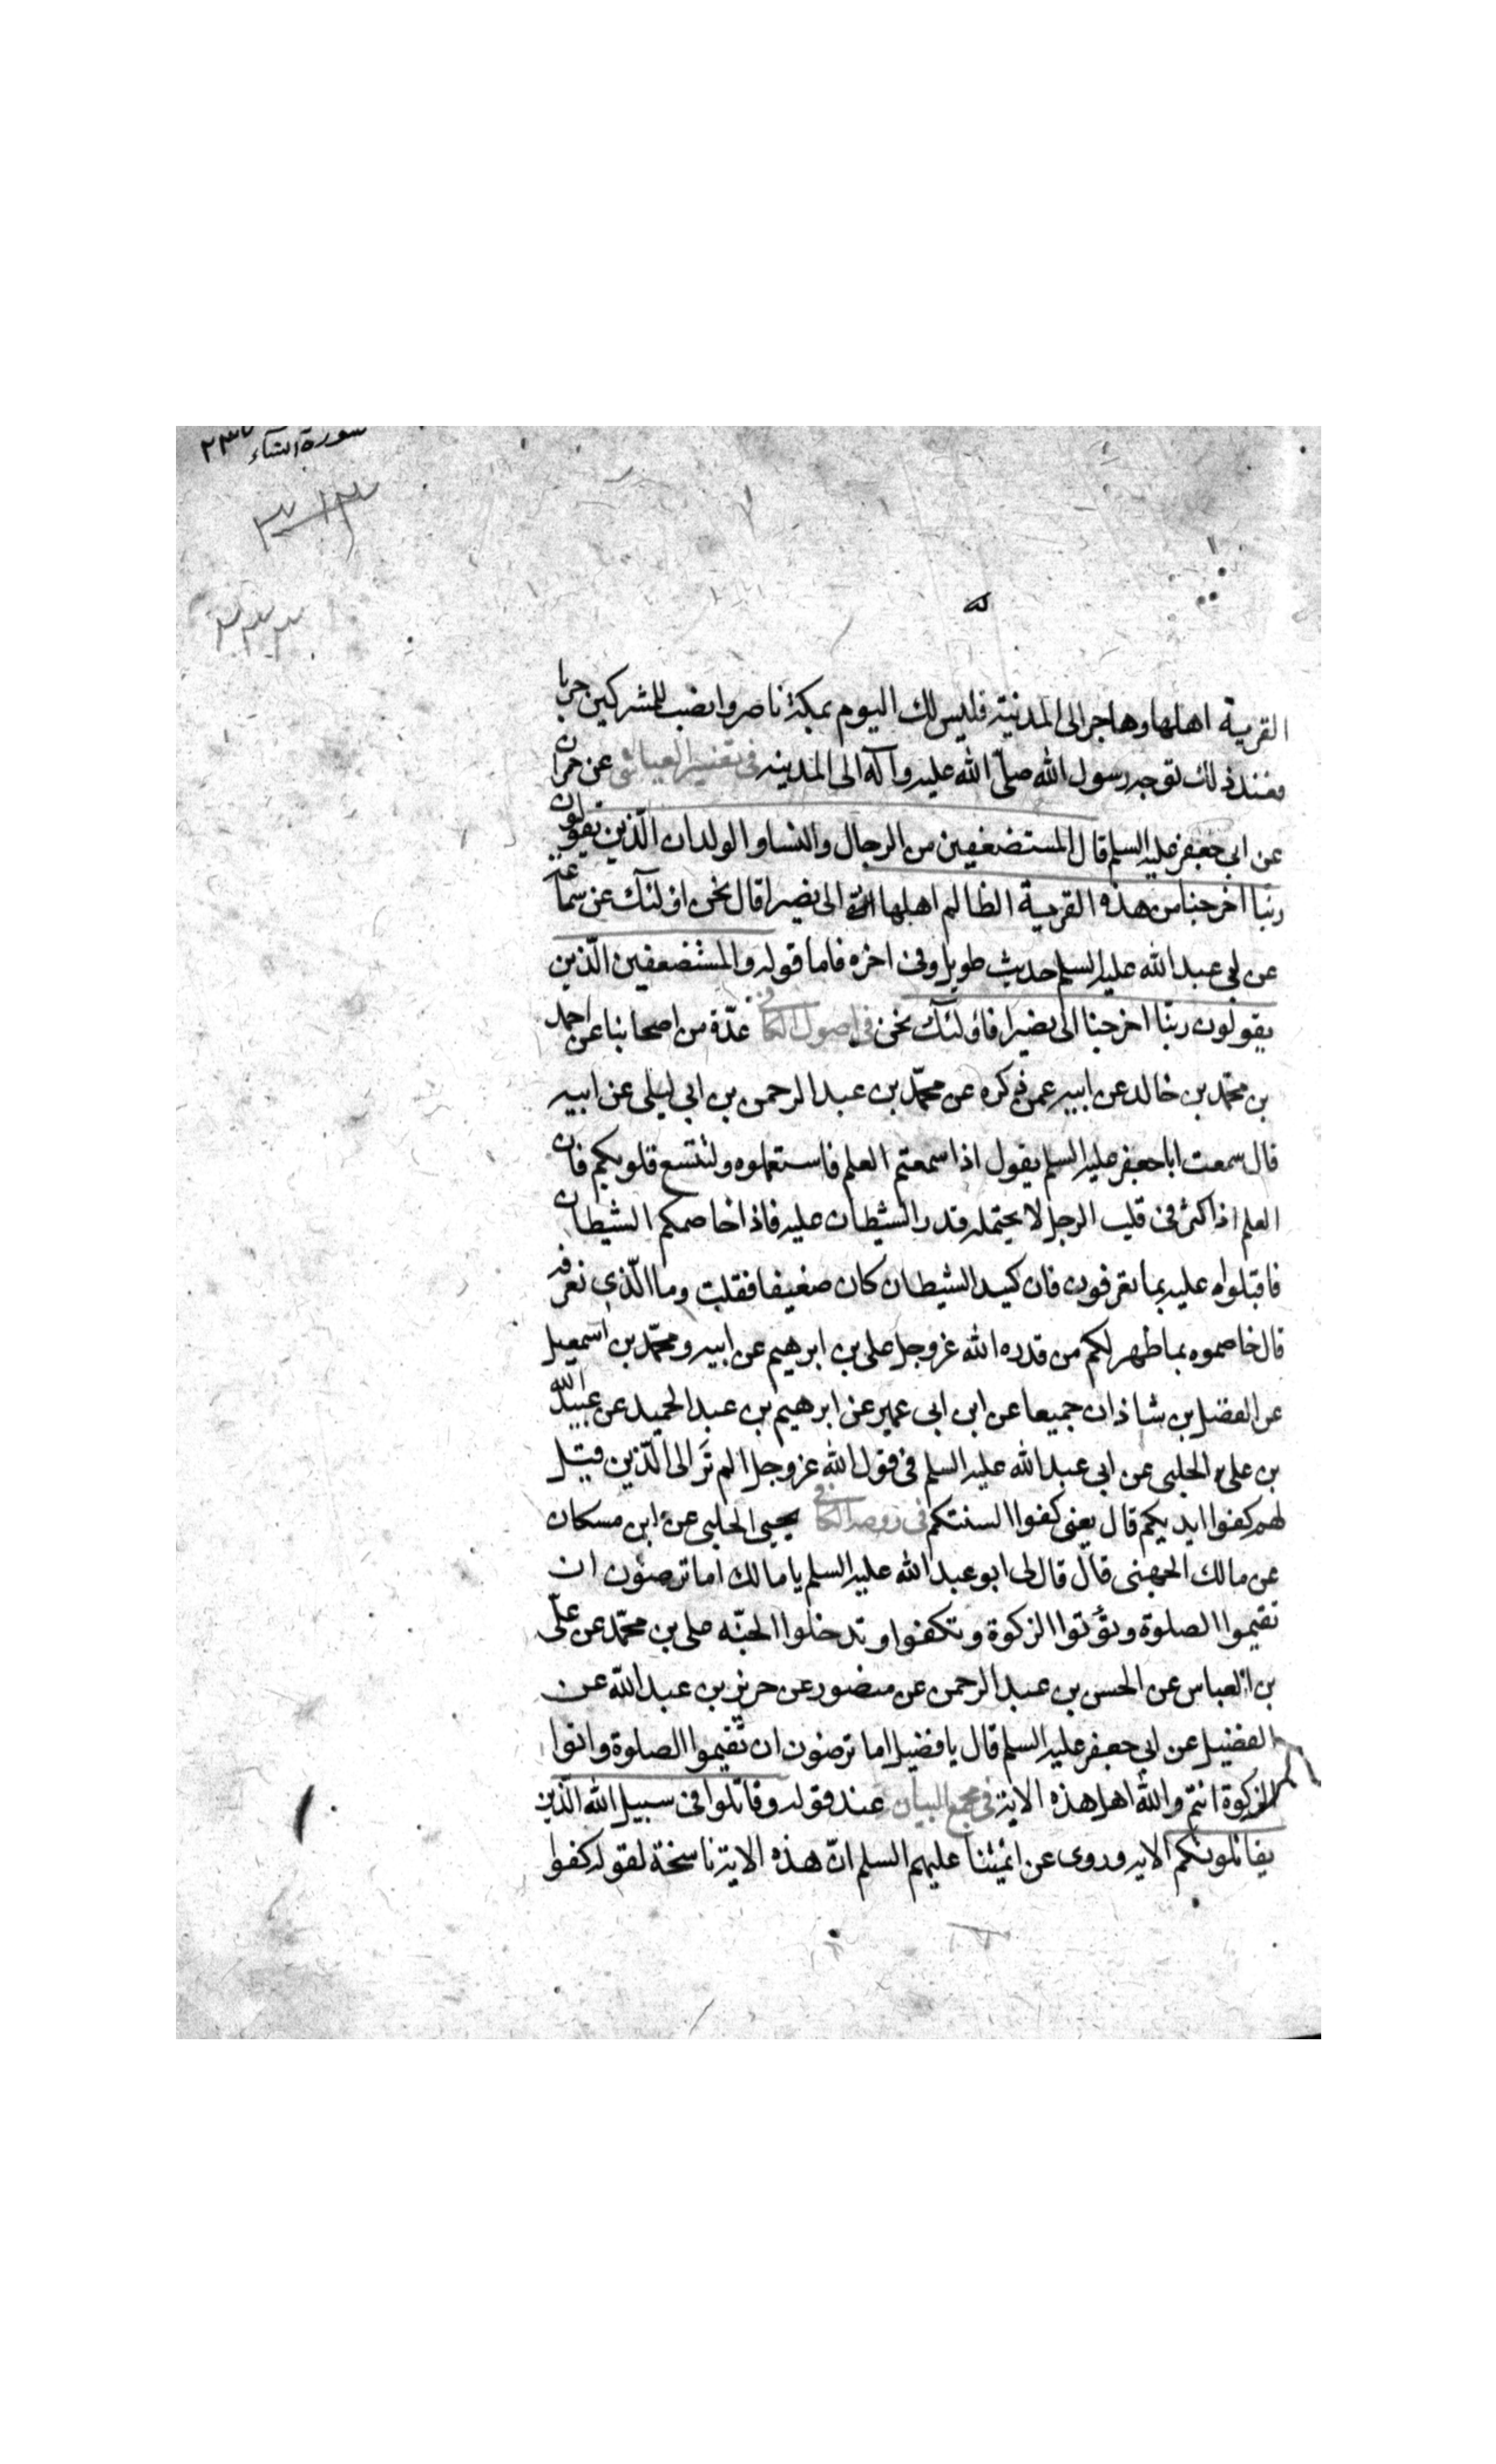 سورة النساء
القرية اهلها وهاجر الى المدينة فليس لك اليوم بمكة ناصر وانصب للمشركين حربا
فعند ذلك توجه رسول الله صلّى الله عليه وآله الى المدينه فى تفسير العياشى عن حمران
عن ابي جعفر عليه السلم قال المستضعفين من الرجال والنسا والولدان الّذين يقولون
ربّنا اخرجنا من هذه القرية الظالم اهلها الى نصيرا قال نحن اولئك عن سماعة
عن ابى عبد الله عليه السلم حديث طويل وفى اخره فاما قوله والمستضعفين الّذين
يقولون ربّنا اخرجنا الى نصيرا فاولئك نحن فى اصول الكافى عدّة من اصحابنا عن احمد
بن محمّد بن خالد عن ابيه عمن ذكره عن محمّد بن عبد الرحمن بن ابى ليلى عن ابيه
قال سمعت ابا جعفر عليه السلم يقول اذا سمعتم العلم فاستعملوه ولتتسع قلوبكم فان
العلم اذا كثر فى قلب الرجل لا يحتمله قدر الشيطان عليه فاذا خاصمكم الشيطان
فاقبلوا عليه بما تعرفون فان كيد الشيطان كان ضعيفا فقلت وما الّذى نعرفه
قال خاصموه بما ظهر لكم من قدره الله عزوجل على بن ابرهيم عن ابيه ومحمّد بن اسمعيل
عن الفضل بن شاذان جميعا عن ابن ابى عمير عن ابرهيم بن عبد الحميد عن عبيد الله
بن على الحلبى عن ابى عبد الله عليه السلم فى قول الله عزوجل الم تَرَ الى الّذين قيل
لهم كفوا ايديكم قال يعنى كفوا السنتكم فى روضه الكافى يحيى الحلبى عن ابن مسكان
عن مالك الجهنى قال قال لى ابو عبد الله عليه السلم يا مالك اما ترضون ان
تقيموا الصلوة وتؤتوا الزكوة وتكفوا وتدخلوا الجنّه على بن محمّد عن علّى
بن العباس عن الحسن بن عبد الرحمن عن منصور عن حريز بن عبد الله عن
الفضيل عن ابي جعفر عليه السلم قال يا فضيل اما ترضون ان تقيموا الصلوة واتوا
الزكوة انتم والله اهل هذه الاية فى مجمع البيان عند قوله وقاتلوا فى سبيل الله الّذين
يقاتلونكم الايه وروى عن ائمتنا عليهم السلم انّ هذه الاية ناسخة لقوله كفوا